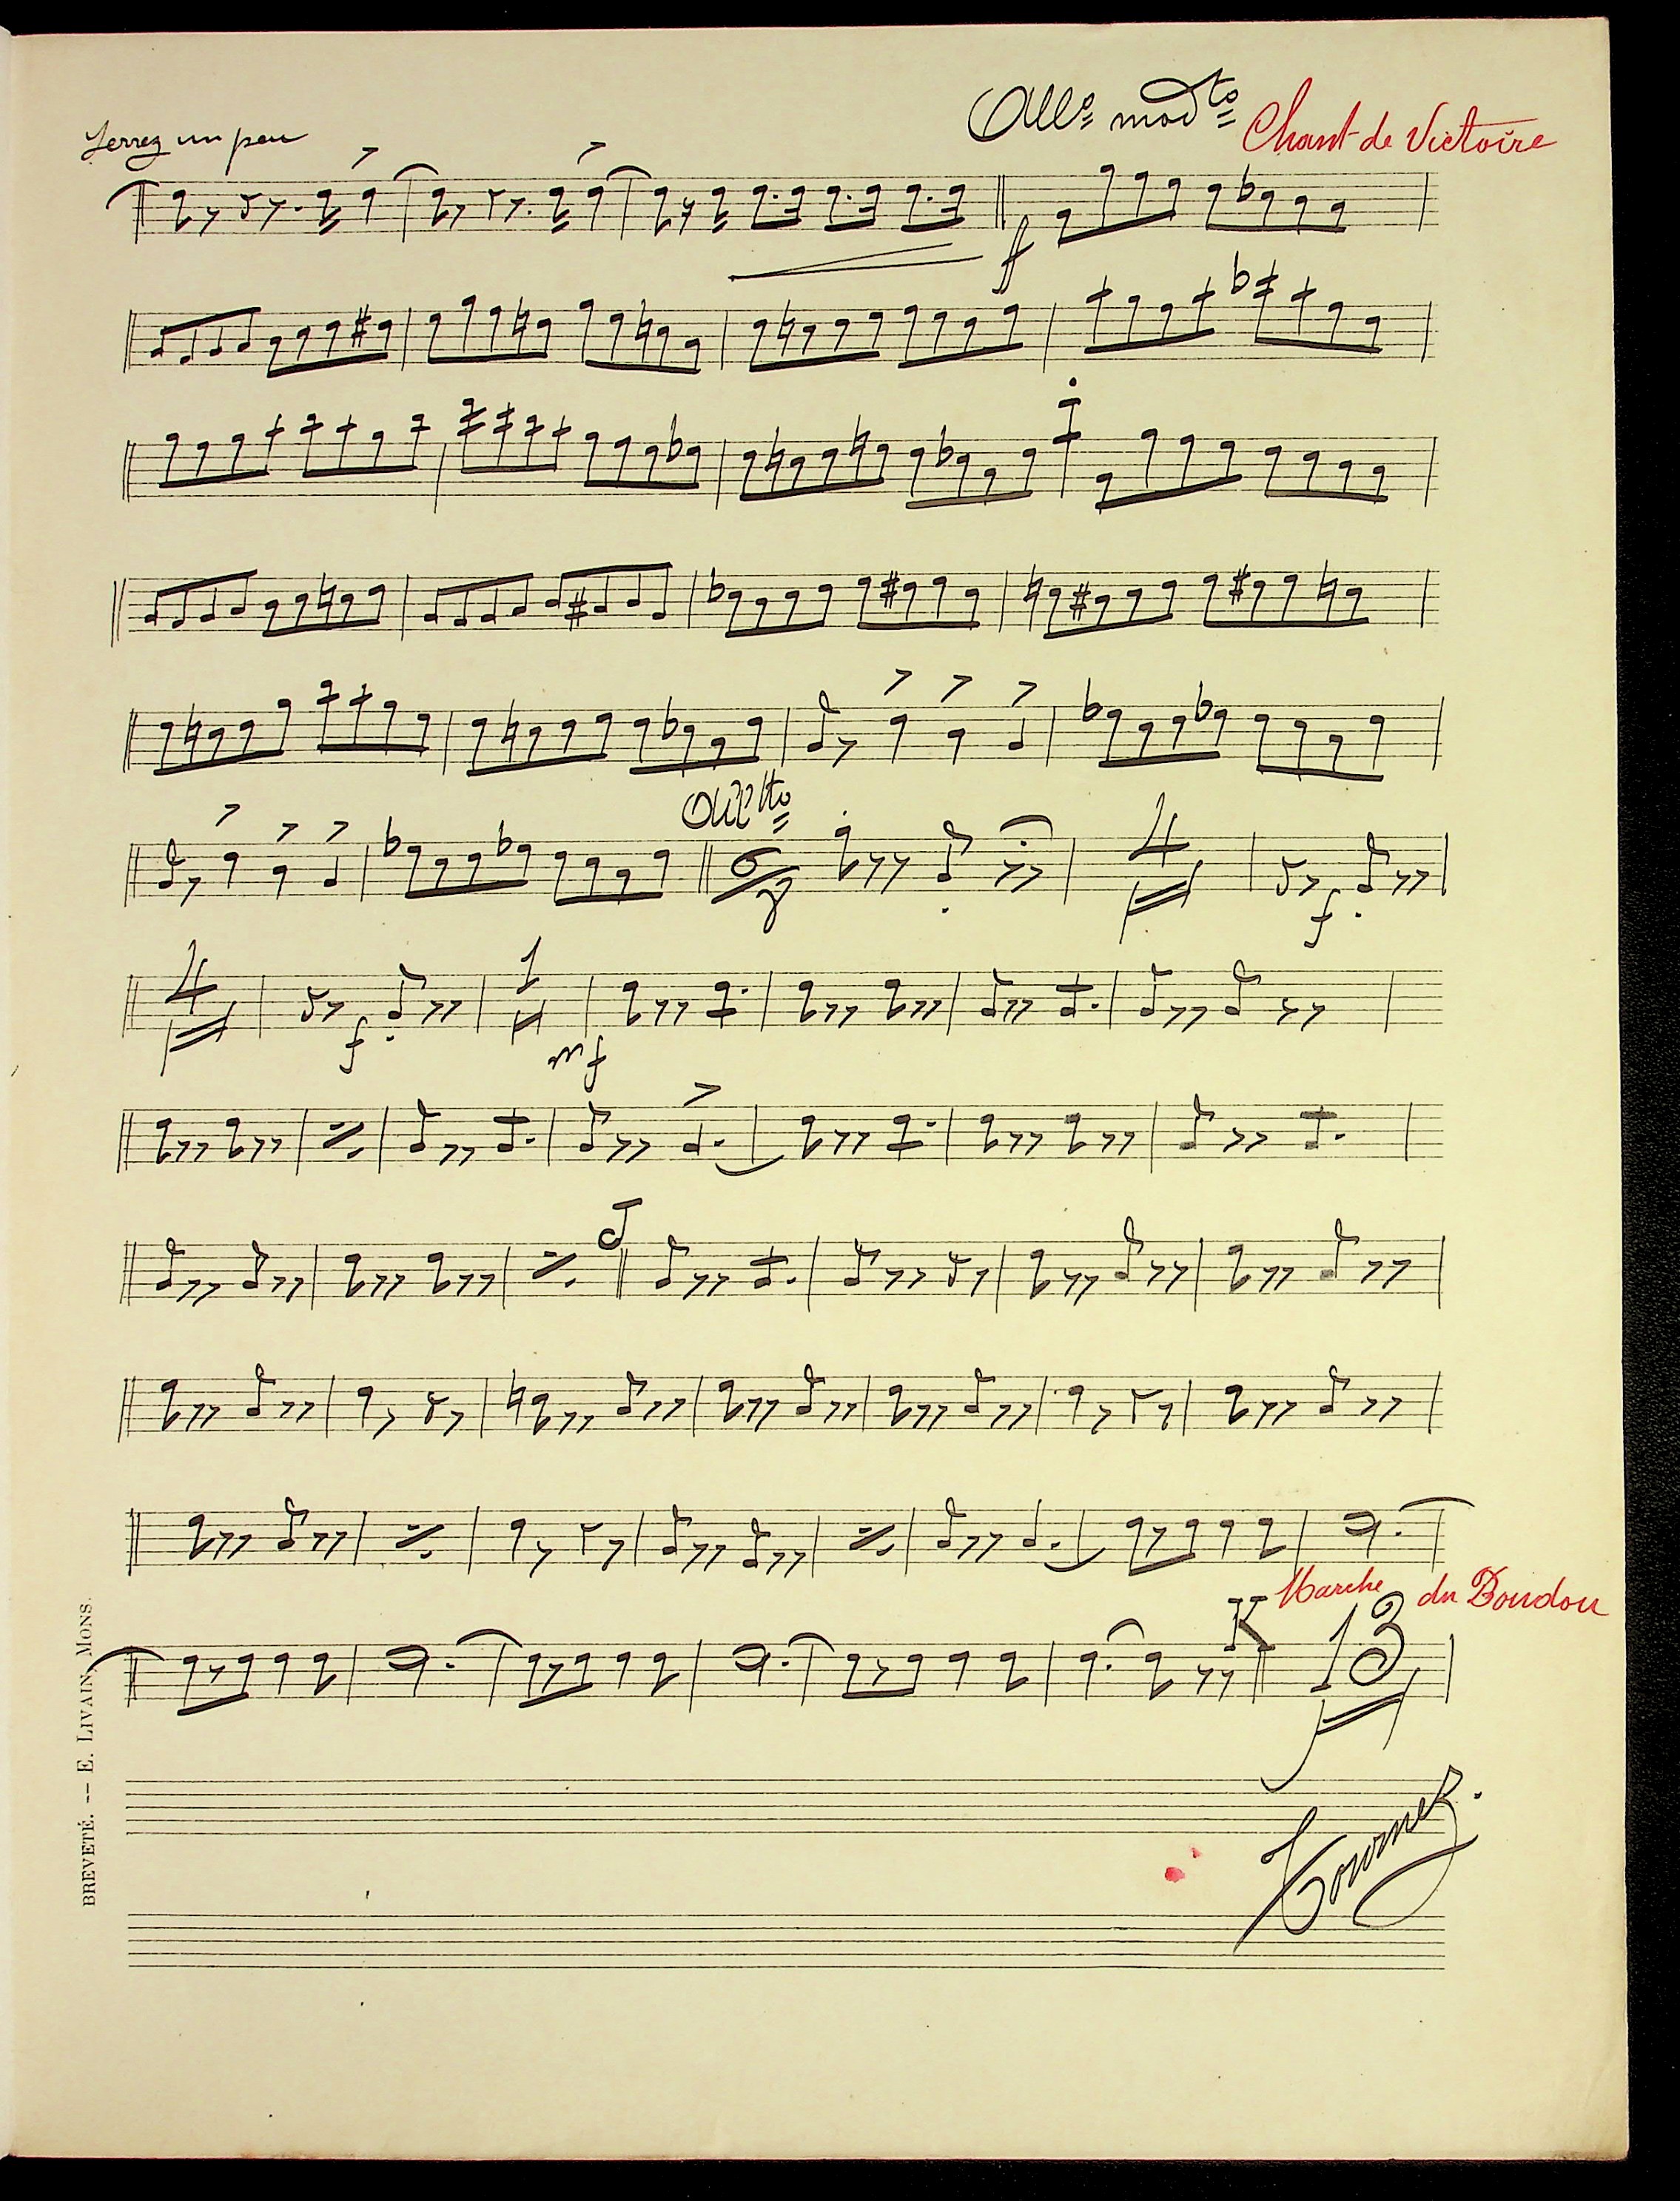 Serrez un peu
All° mod^to Chant de Victoire
f
All^tto
6/8
4
f
4
f
1
mf
J
K Marche du Doudou
13
Tournez.
BREVETÉ. -- E. LIVAIN, MONS.